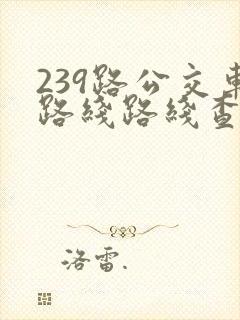 239路公交車
路线路线查
洛雷.